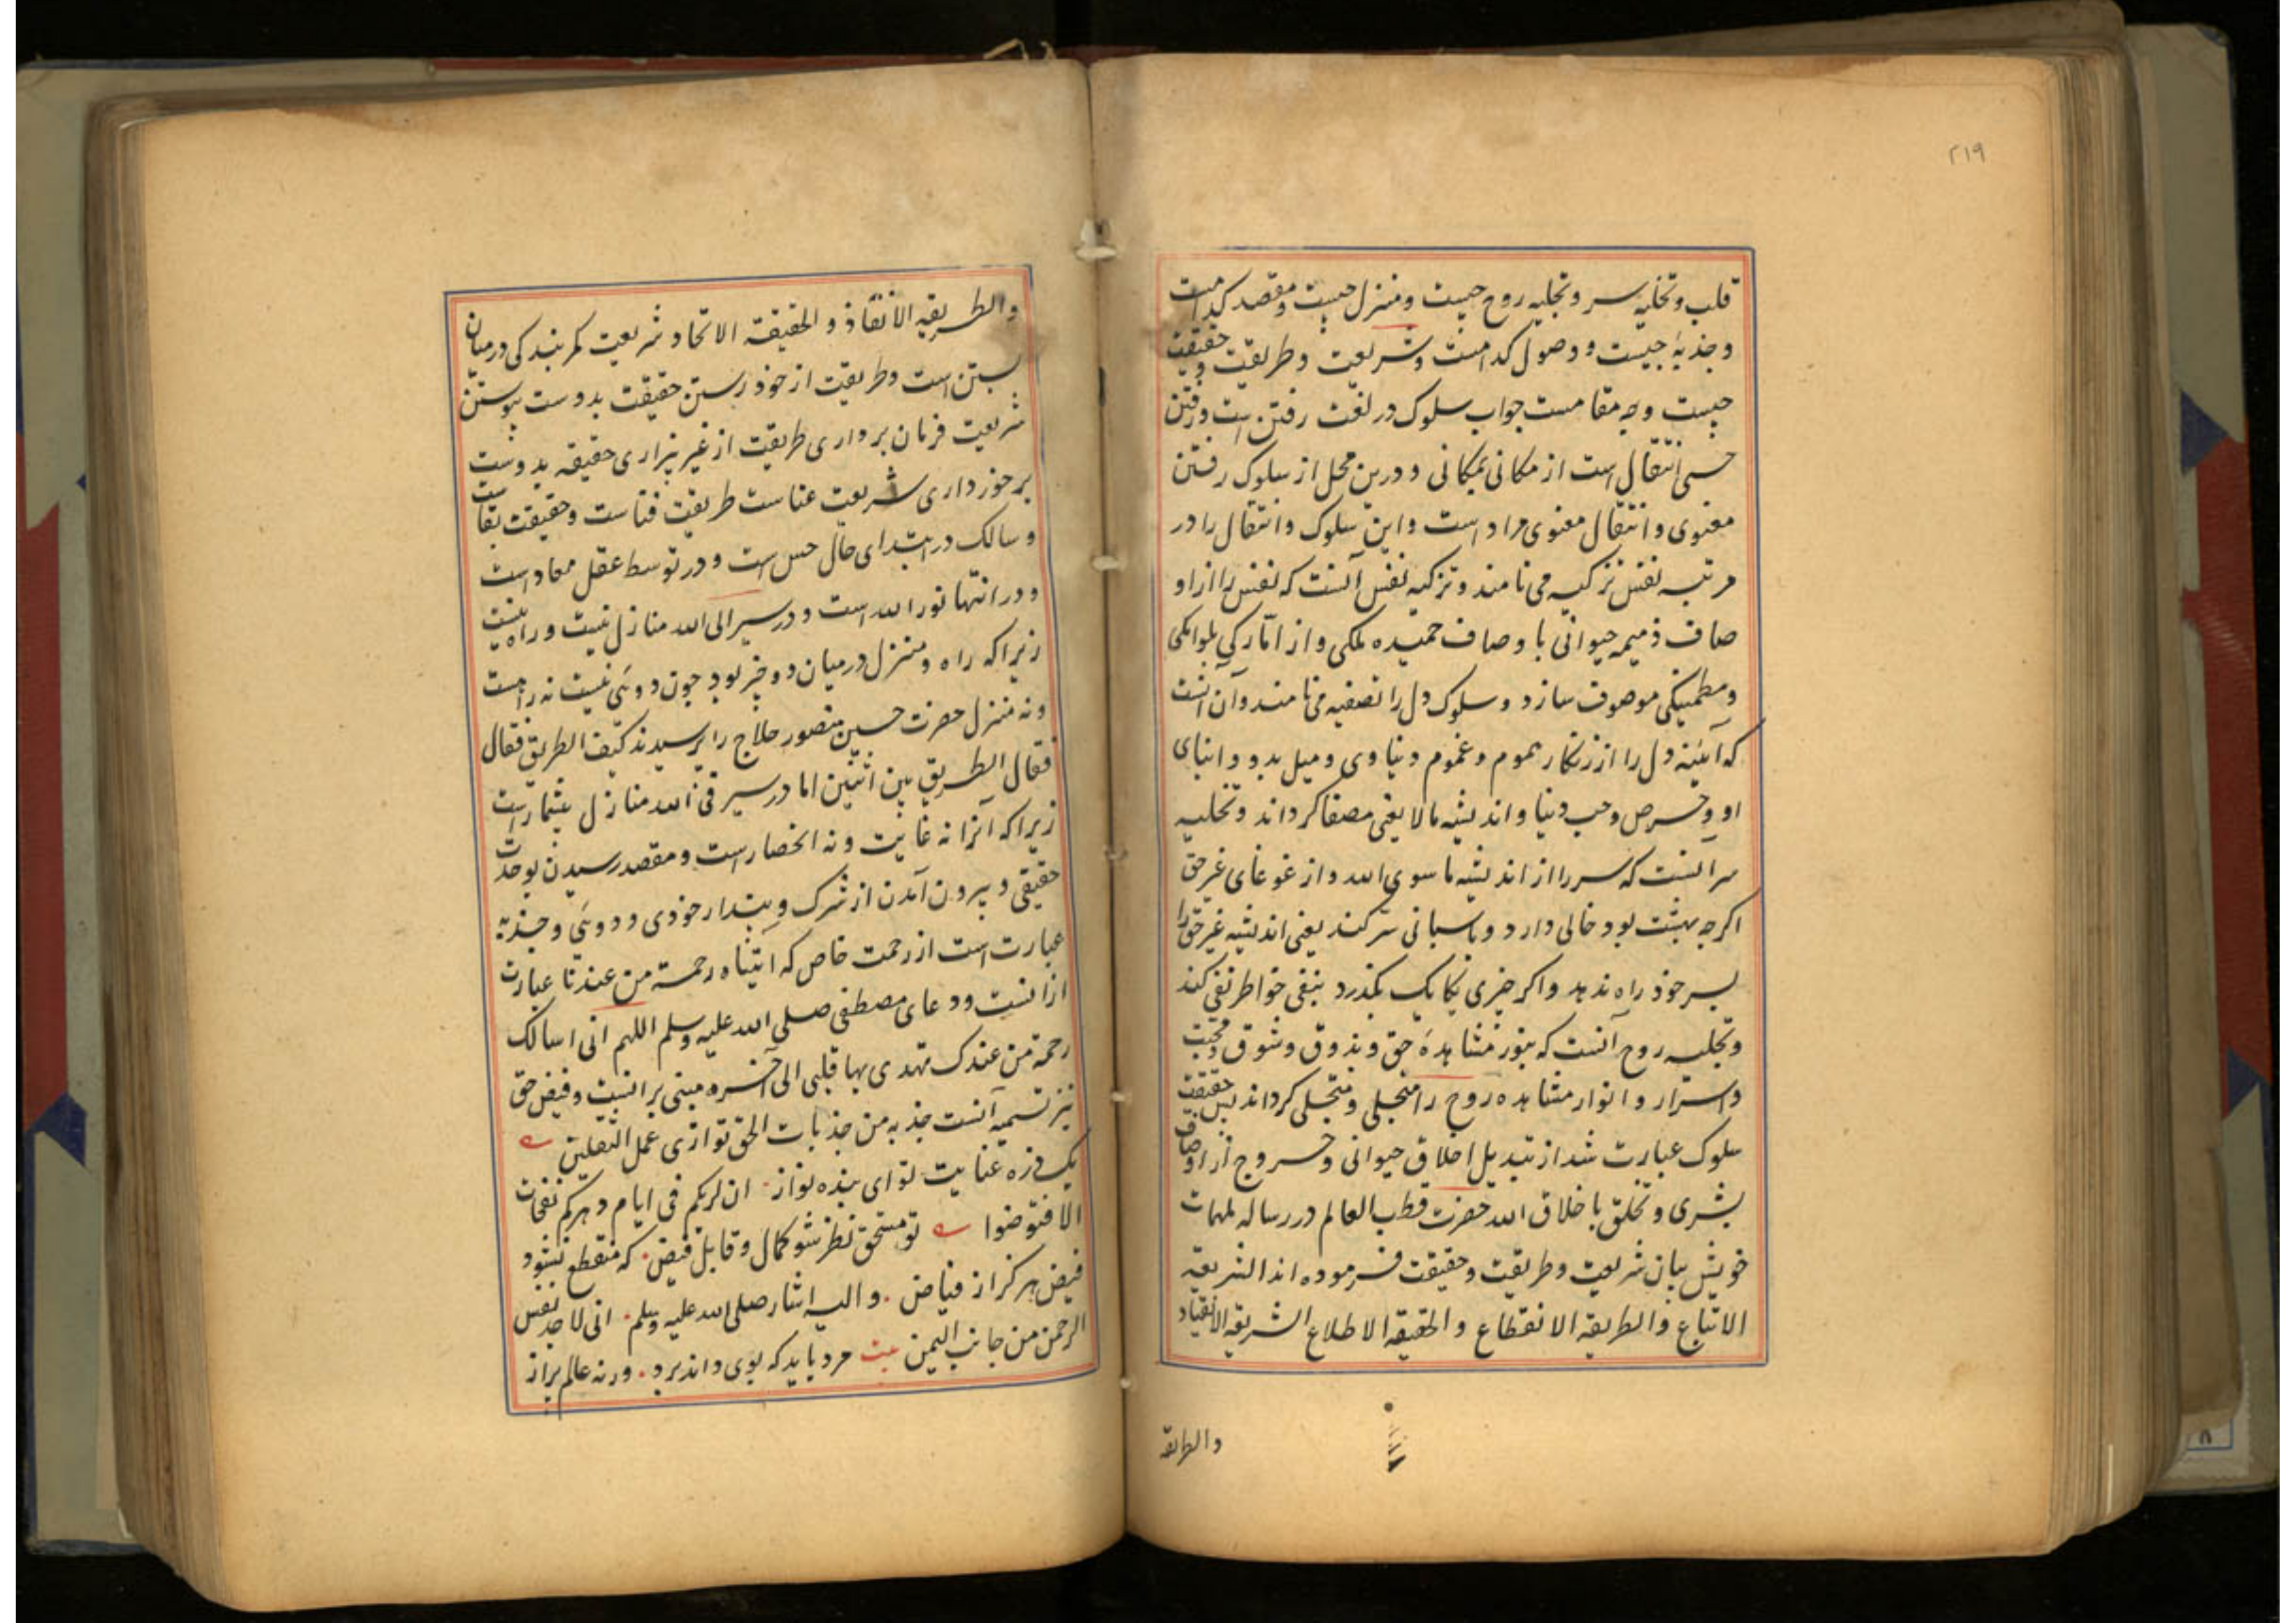 ۲۱۹
قلب و تخلیه سر و تجلیه روح چیست و منزل چیست و مقصد کدامست
و جذبهٔ چیست و وصول کدامست و شریعت و طریقت و حقیقت
چیست و چه مقامست جواب سلوک در لغت رفتن است و رفتن
حسی انتقال است از مکانی بمکانی و درین محل از سلوک رفتن
معنوی و انتقال معنوی مراد است و این سلوک و انتقال را در
مرتبه نفس تزکیه می نامند و تزکیه نفس آنست که نفس را از او
صاف ذمیمه حیوانی با وصاف حمیده ملکی و از امّارکی بلوامکی
و مطمئنکی موصوف سازد و سلوک دل را تصفیه می نامند و آن آنست
که آئینه دل را از زنکار هموم و غموم دنیاوی و میل بدو و ابنای
او و حرص و حب دنیا و اندیشه مالا یعنی مصفا کرداند و تخلیه
سر آنست که سر را از اندیشه ما سوی الله و از غوغای غیر حق
اکرچه بهشت بود خالی دارد و پاسبانی سّر کند یعنی اندیشه غیر حق را
بسر خود راه ندهد و اکر چیزی یکایک بکذرد بنفی خواطر نفی کند
و تجلیه روح آنست که بنور مشاهدهٔ حق و بذوق و شوق و محبت
و اسرار و انوار مشاهده روح را منجلی و متجلی کرداند پس حقیقت
سلوک عبارت شد از تبدیل اخلاق حیوانی و خروج از اوصاف
بشری و تخلق باخلاق الله حضرت قطب العالم در رساله ملهمات
خویش بیان شریعت و طریقت و حقیقت فرموده اند الشریعه
الاتباع و الطریقه الانقطاع و الحقیقه الاطلاع الشریعه الانقیاد
والطریقه
والطریقه الانفاذ و الحقیقة الاتحاد شریعت کمر بندکی در میان
بستن است و طریقت از خود رستن حقیقت بدوست پیوستن
شریعت فرمان برداری طریقت از غیر بیزاری حقیقه بدوست
برخورداری شریعت عناست طریقت فناست و حقیقت بقاست
و سالک در ابتدای حال حس است و در توسط عقل معاد است
و در انتها نور الله است و در سیر الی الله منازل نیست و راه نیست
زیرا که راه و منزل در میان دو چیز بود چون دوئی نیست نه راهست
و نه منزل حضرت حسین منصور حلاج را پرسیدند کیف الطریق فقال
فقال الطریق بین اثنین اما در سیر فی الله منازل بیشمار است
زیرا که آنرا نه غایت و نه انحصار است و مقصد رسیدن بوحدت
حقیقی و بیرون آمدن از شرک و پندار خودی و دوئی و جذبه
عبارت است از رحمت خاص که اتیناه رحمة من عندنا عبارت
از آنست و دعای مصطفی صلی الله علیه وسلم اللهم انی اسالک
رحمة من عندک تهدی بها قلبی الی آخره مبنی بر آنست و فیض حق
نیز تسمیه آنست جذبه من جذبات الحق توازی عمل الثقلین
یک ذره عنایت تو ای بنده نواز ان لربکم فی ایام دهرکم نفحات
الا فتوضوا تو مستحق نظر شو کمال و قابل فیض که منقطع نشود
فیض هرکز از فیاض والیه اشار صلی الله علیه وسلم انی لا جد نفس
الرحمن من جانب الیمن بیت مرد باید که بوی داند برد ورنه عالم پر از